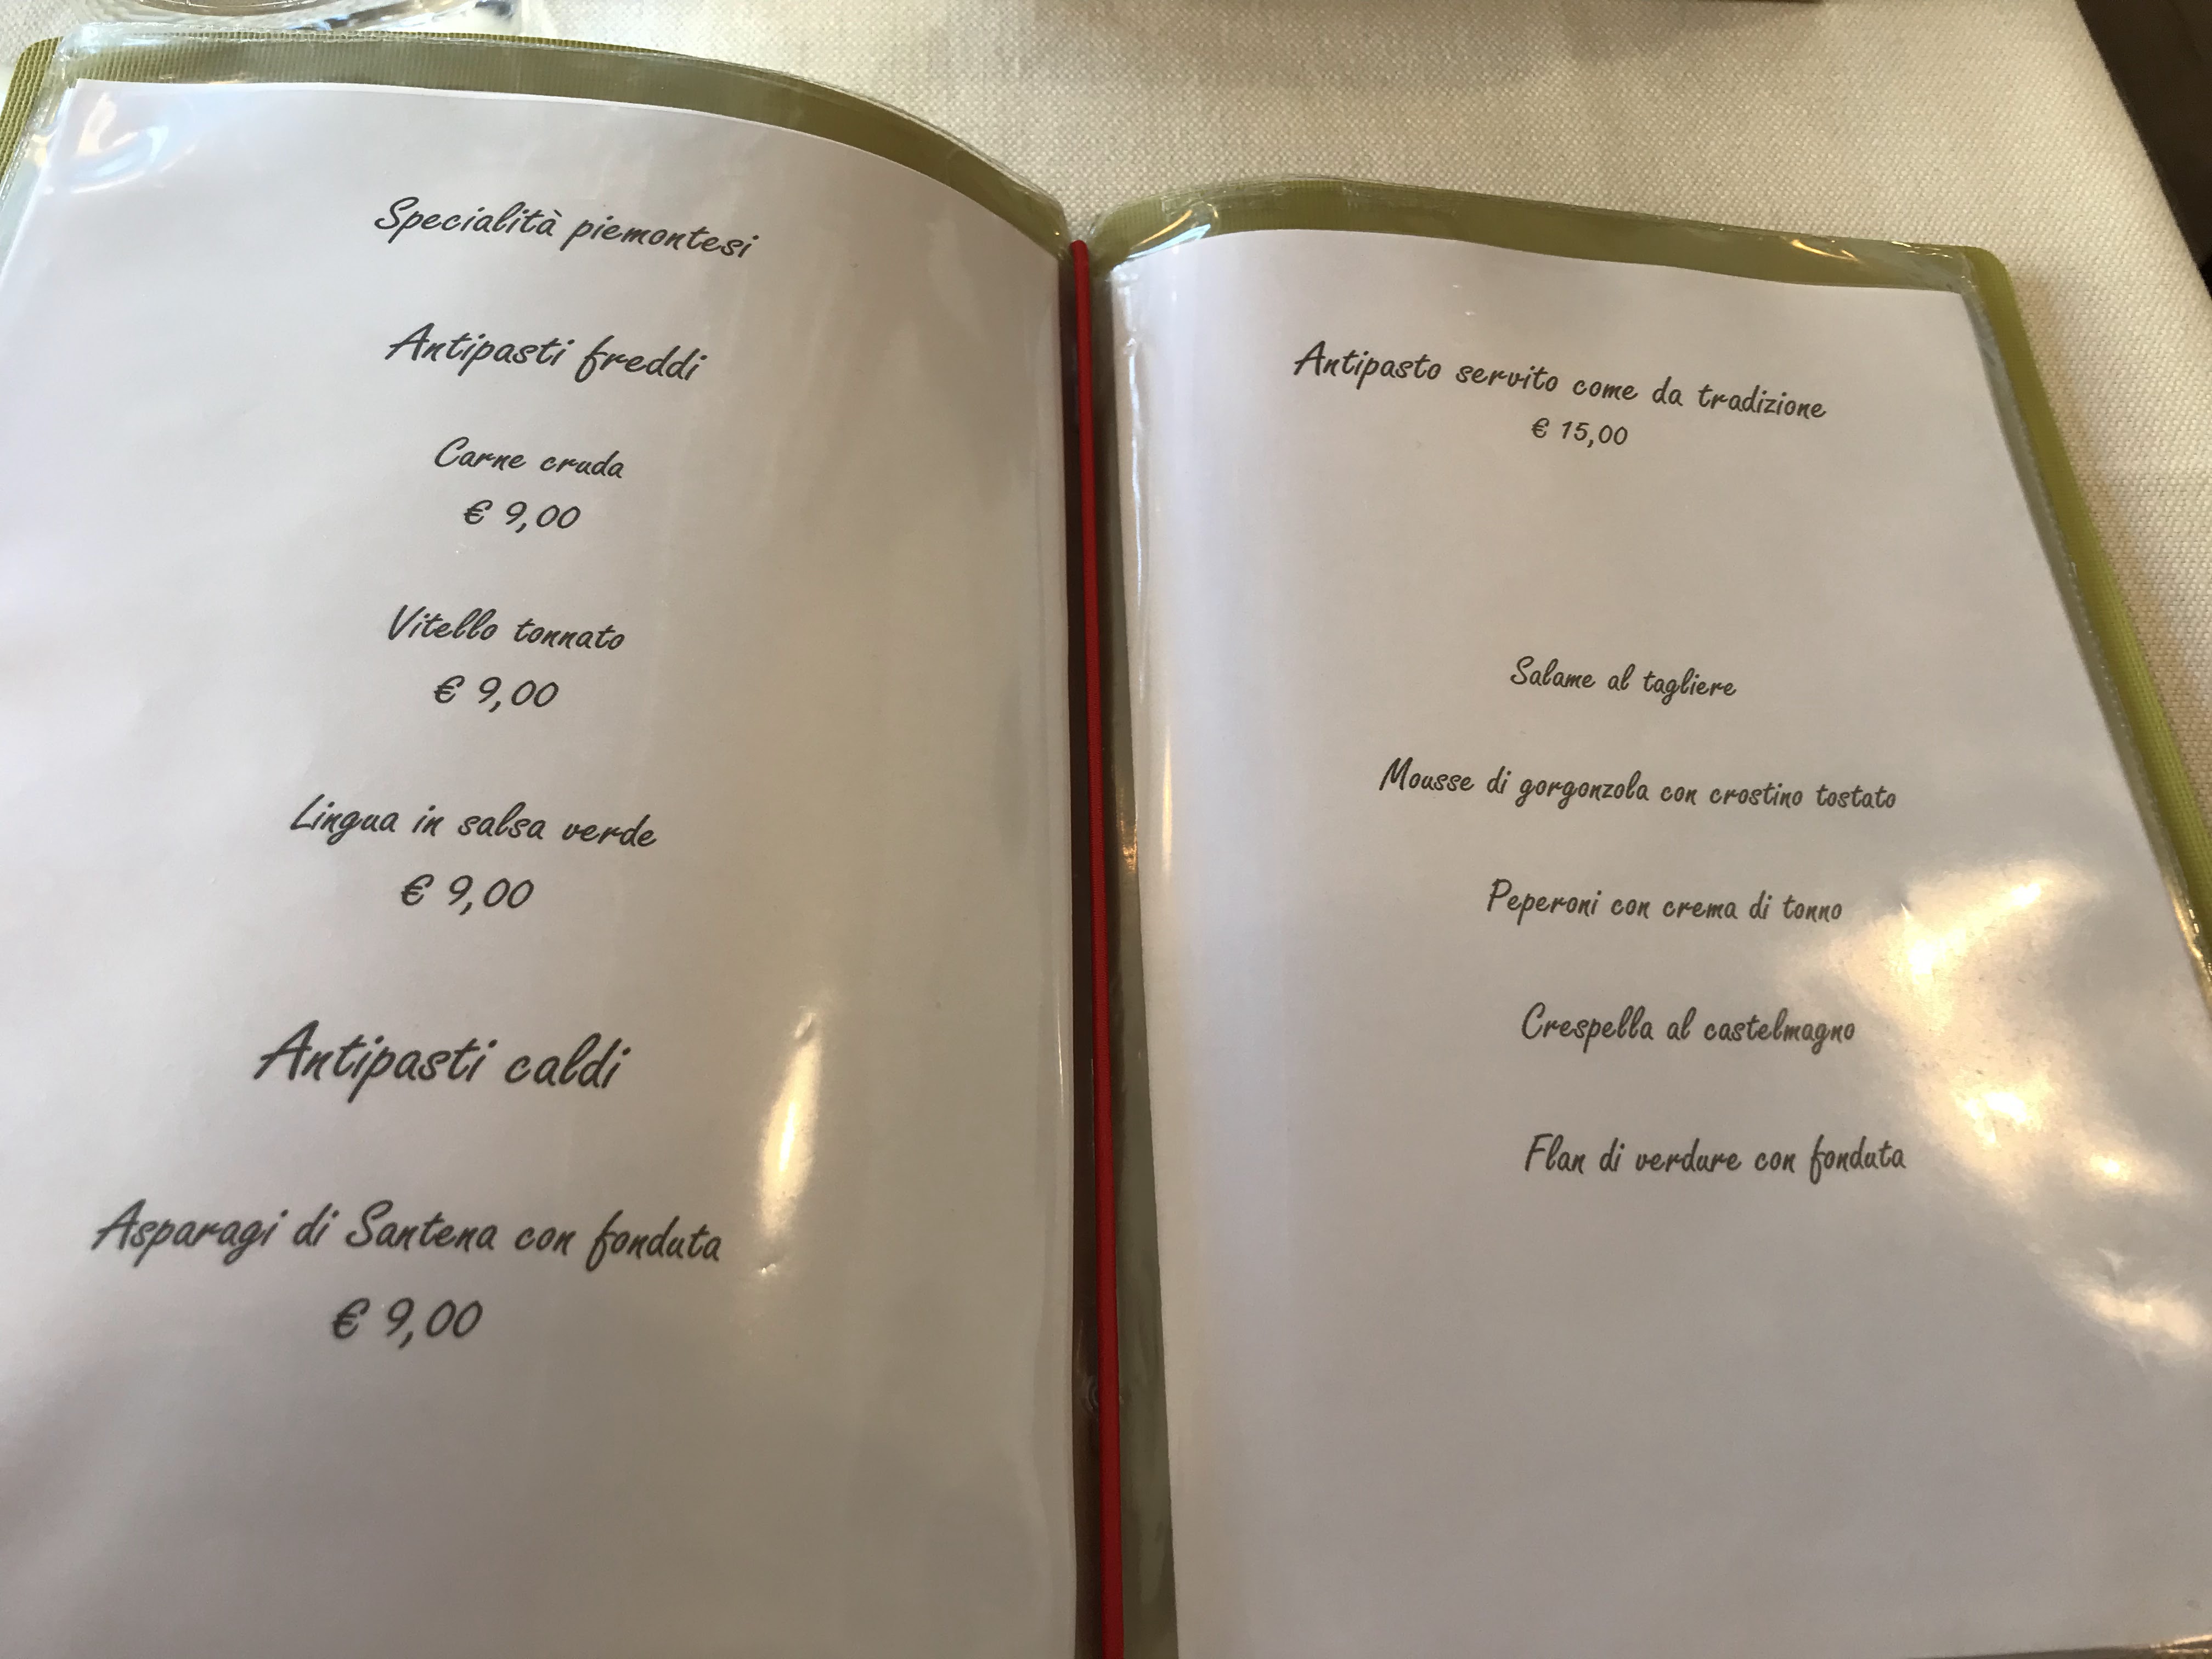 Specialità piemontesi
Antipasti freddi
Carne cruda
€ 9,00
Vitello tonnato
€ 9,00
Lingua in salsa verde
€ 9,00
Antipasti caldi
Asparagi di Santena con fonduta
€ 9,00
Antipasto servito come da tradizione
€ 15,00
Salame al tagliere
Mousse di gorgonzola con crostino tostato
Peperoni con crema di tonno
Crespella al castelmagno
Flan di verdure con fonduta